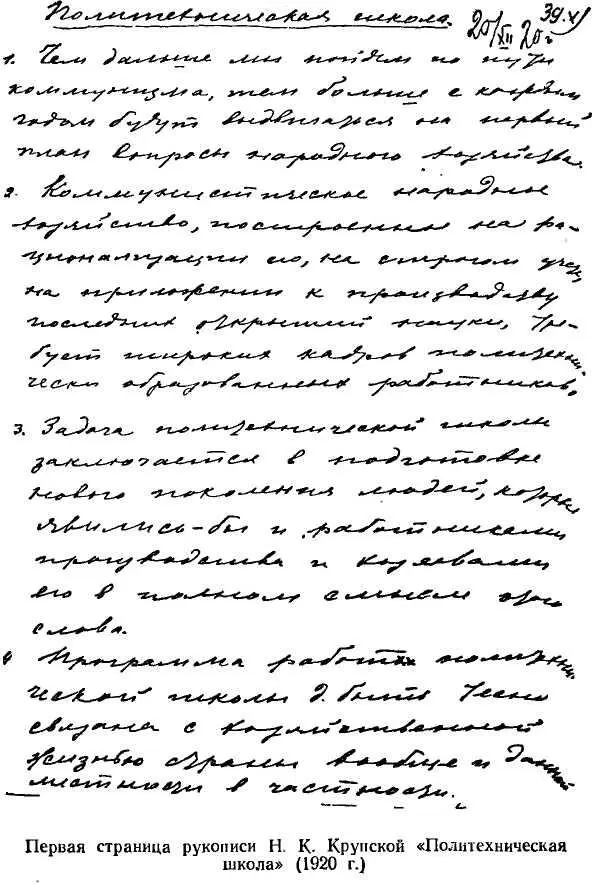 Политехническая школа.
20/XII 20 г.
1. Чем дальше мы пойдем по пути
коммунизма, тем больше с каждым
годом будут выдвигаться на первый
план вопросы народного хозяйства.
2. Коммунистическое народное
хозяйство, построенное на ра-
ционализации его, на строгом учете,
на приложении к производству
последних открытий науки, тре-
бует широких кадров политехни-
чески образованных работников.
3. Задача политехнической школы
заключается в подготовке
нового поколения людей, которые
явились-бы и работниками
производства и хозяевами
его в полном смысле этого
слова.
4 Программа работ политехни-
ческой школы д. быть тесно
связана с хозяйственной
жизнью страны вообще и данной
местности в частности.
Первая страница рукописи Н. К. Крупской «Политехническая
школа» (1920 г.)